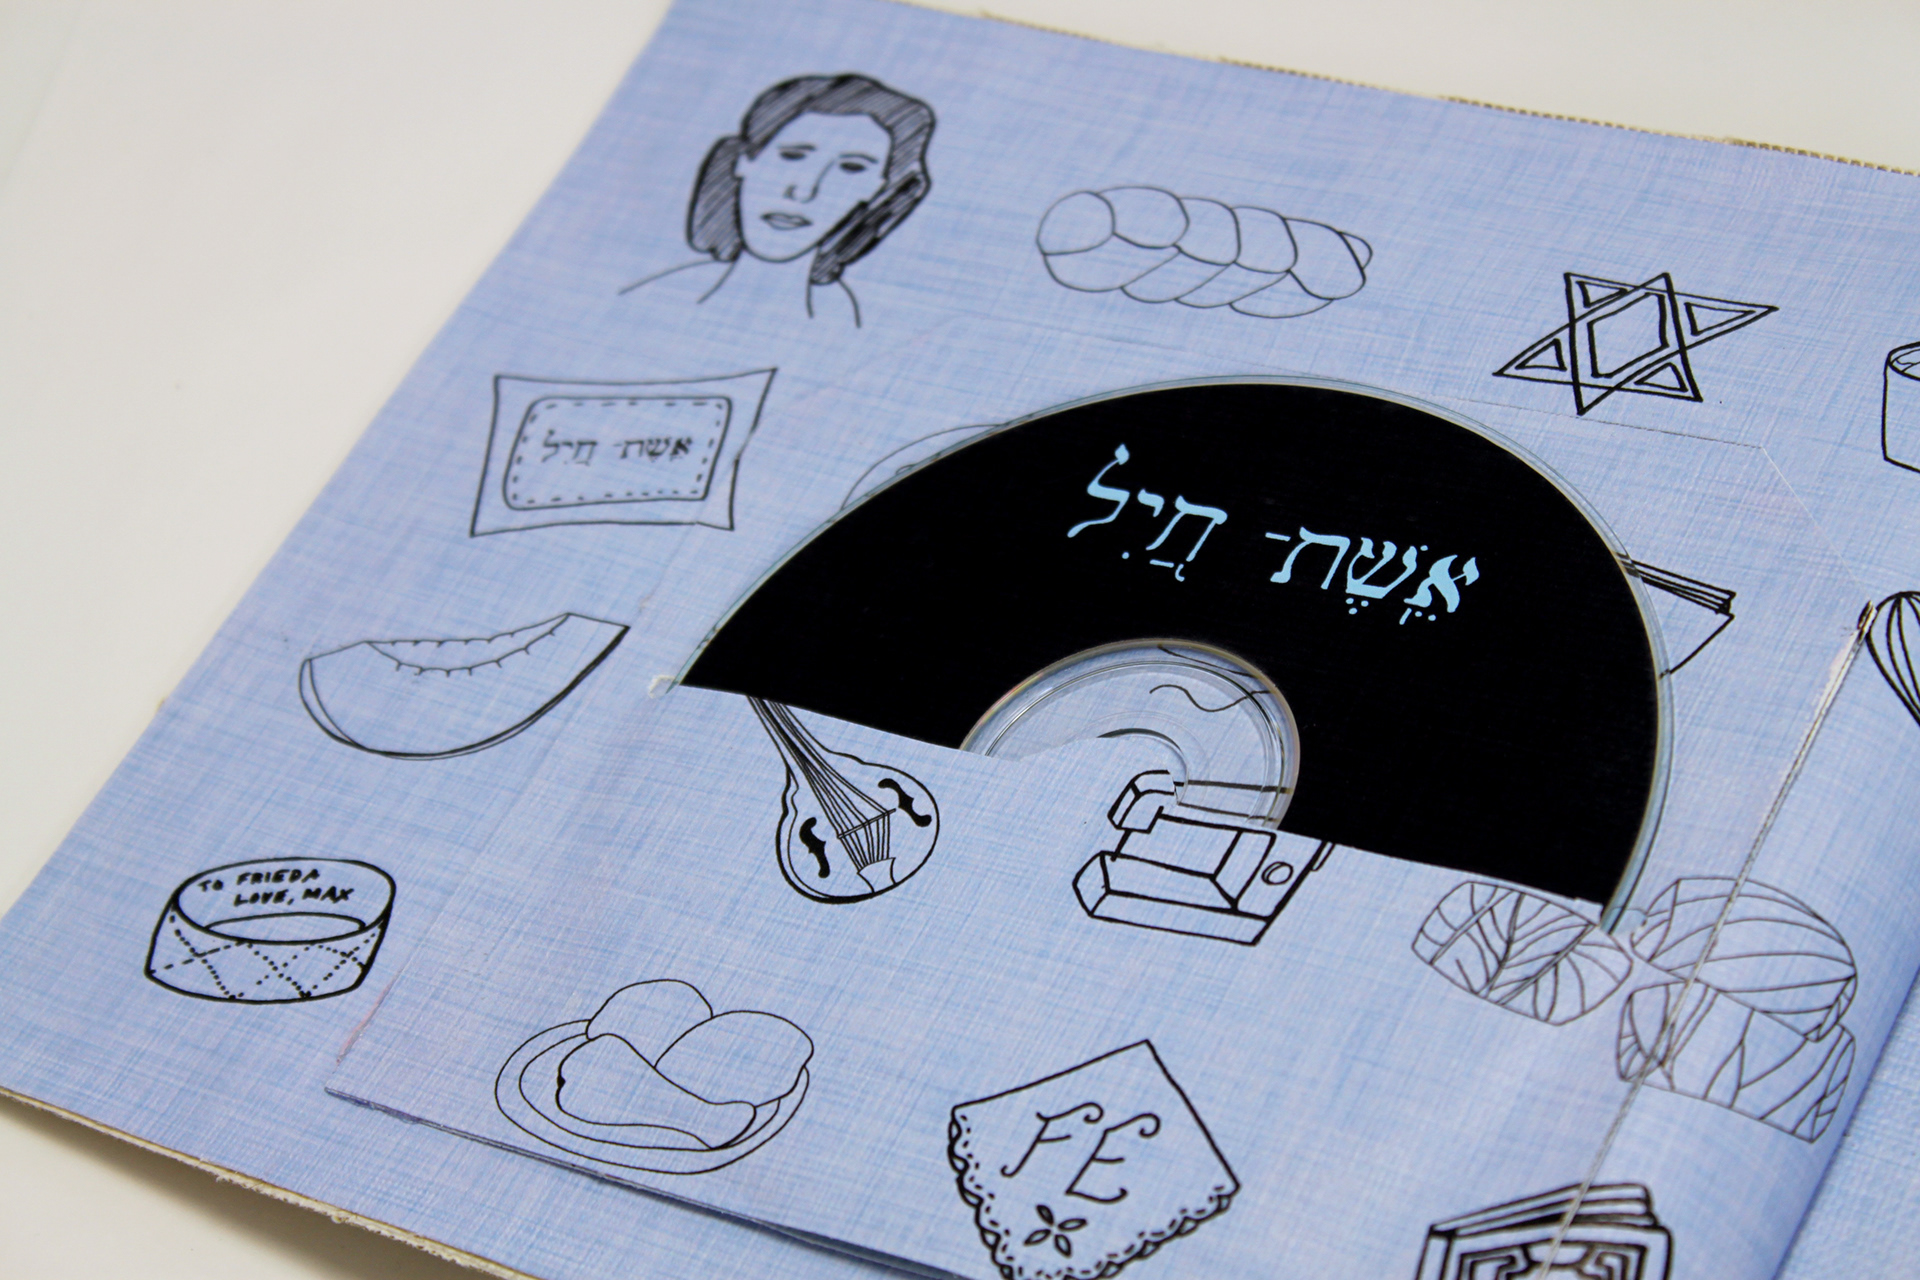 אֵשֶׁת־ חֲיִל
אֵשֶׁת־ חֲיִל
TO FRIEDA
LOVE, MAX
FE